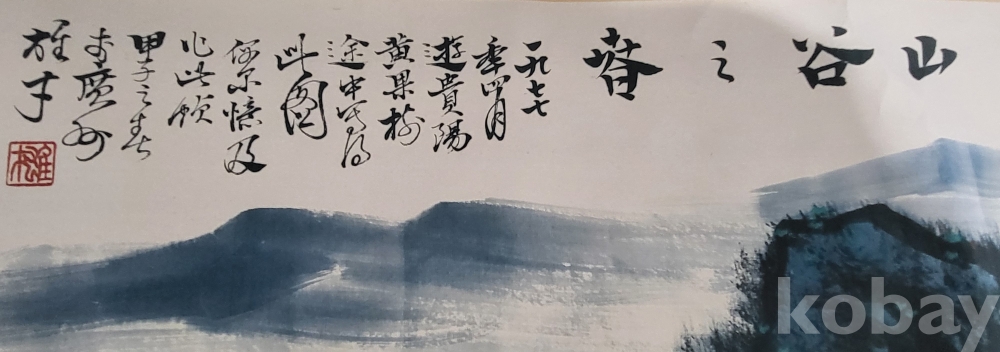 山谷之春
一九七七
年四月
遊貴陽
黃果樹
途中得
此圖
憶及
作此幀
甲子之春
於廣州
雄才
kobay